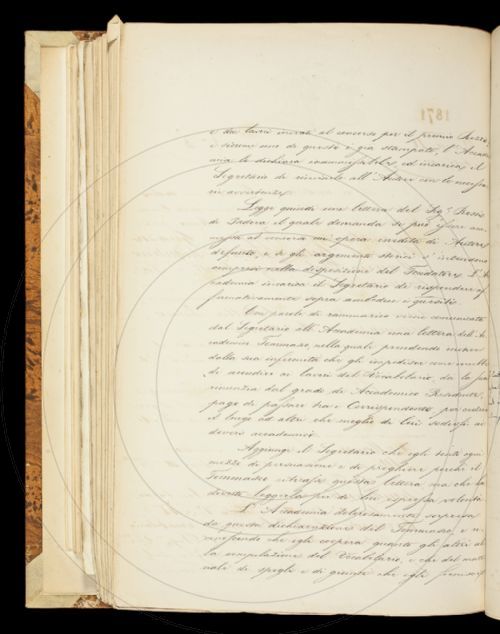 1871
e due lavori inviati al concorso per il premio Rezzi,
e siccome uno di questi è già stampato l'Accade
mia lo dichiara inammissibile, ed incarica il
Segretario di rinviarlo all'Autore con le necessa
rie avvertenze.
Legge quindi una lettera del Sig.r
di Padova il quale domanda se può essere am
messa al concorso un' opera inedita di Autore
defunto, e se gli argomenti storici s'intendono
compresi nella disposizione del Fondatore. L'Ac
cademia incarica il Segretario di rispondere af
fermativamente sopra ambedue i quesiti.
Con parole di rammarico viene comunicata
dal Segretario all'Accademia una lettera dell'Ac
cademico Tommaseo nella quale prendendo
dalla sua infermità che gli impedisce
di accudire ai lavori del Vocabolario, dà la sua
rinunzia dal grado di Accademico Residente,
pago di passare tra i Corrispondenti per cedere
il luogo ad altri che meglio di lui
doveri accademici.
Aggiunge il Segretario che egli tentò ogni
mezzo di persuasione e di preghiera perché il
Tommaseo ritirasse questa lettera, ma che ha
dovuto leggerla per di lui espressa volontà.
L'Accademia dolorosamente sorpresa
da questa dichiarazione del Tommaseo, e
conoscendo che egli coopera quanto gli altri al
la compilazione del Vocabolario, e che del mate
riale di spogli e di giunte che egli